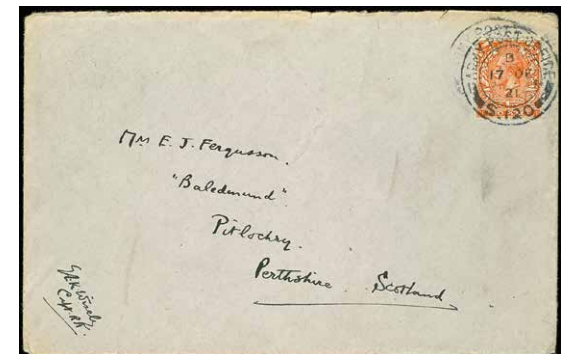 ARMY POST OFFICE
B
17 OC
21
S.120
Mrs E. J. Fergusson.
"Baledmund".
Pitlochry.
Perthshire Scotland
Capt RA.